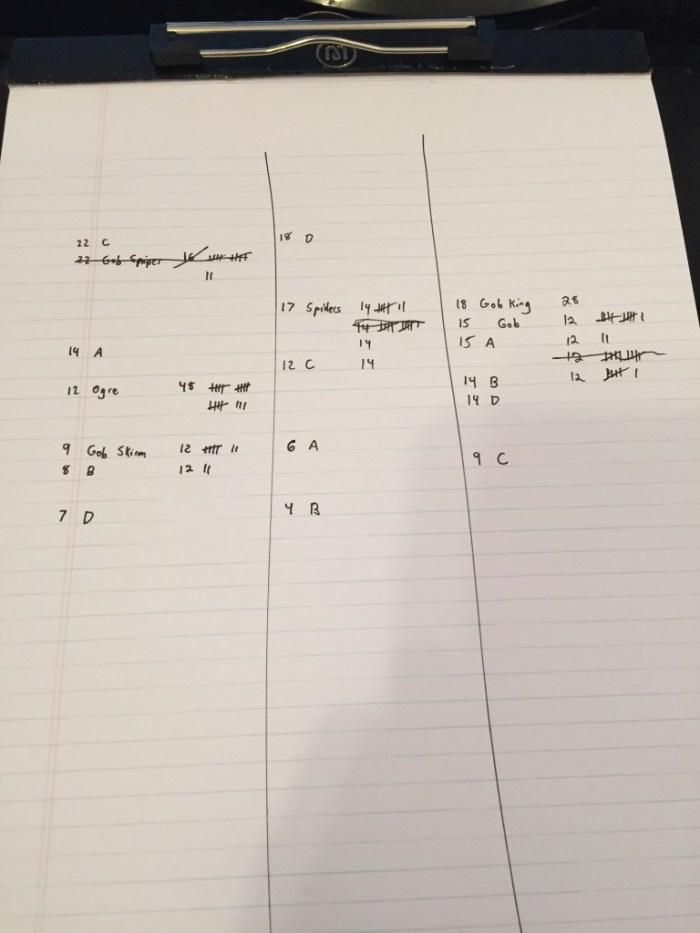 22 C
22 Gob Sniper 16 卌 卌
||
14 A
12 Ogre 48 卌 卌
卌 |||
9 Gob Skirm 12 卌 ||
8 B 12 ||
7 D
18 D
17 Spiders 14 卌 ||
14 卌 卌
14
12 C 14
6 A
4 B
18 Gob King 28
15 Gob 12 卌 卌 |
15 A 12 ||
12 卌 卌
14 B 12 卌 |
14 D
9 C